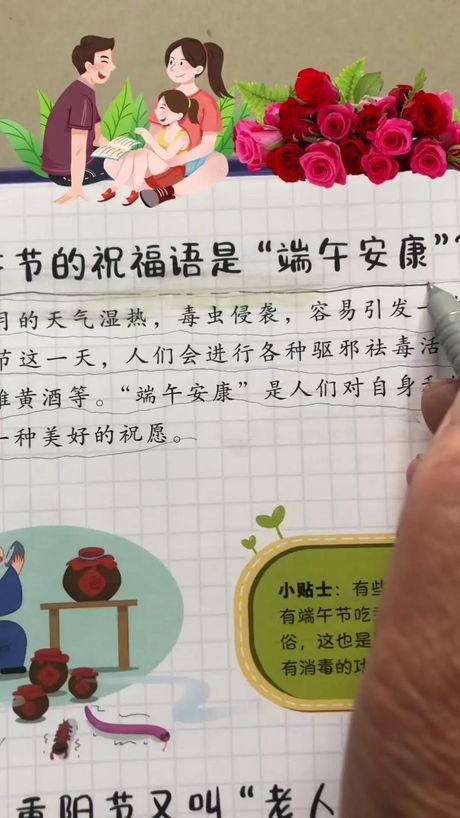 节的祝福语是“端午安康”
月的天气湿热，毒虫侵袭，容易引发
节这一天，人们会进行各种驱邪祛毒活
雄黄酒等。“端午安康”是人们对自身
一种美好的祝愿。
小贴士：有些
有端午节吃
俗，这也是
有消毒的功
重阳节又叫“老人